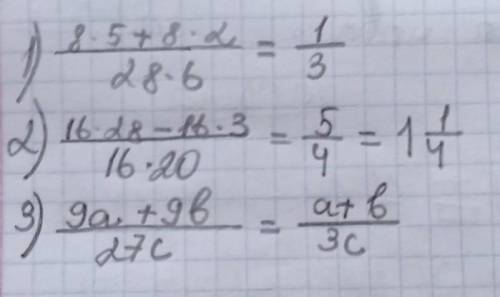 1) (8·5+8·2)/(28·6) = 1/3
2) (16·28-16·3)/(16·20) = 5/4 = 1 1/4
3) (9a+9b)/(27c) = (a+b)/(3c)